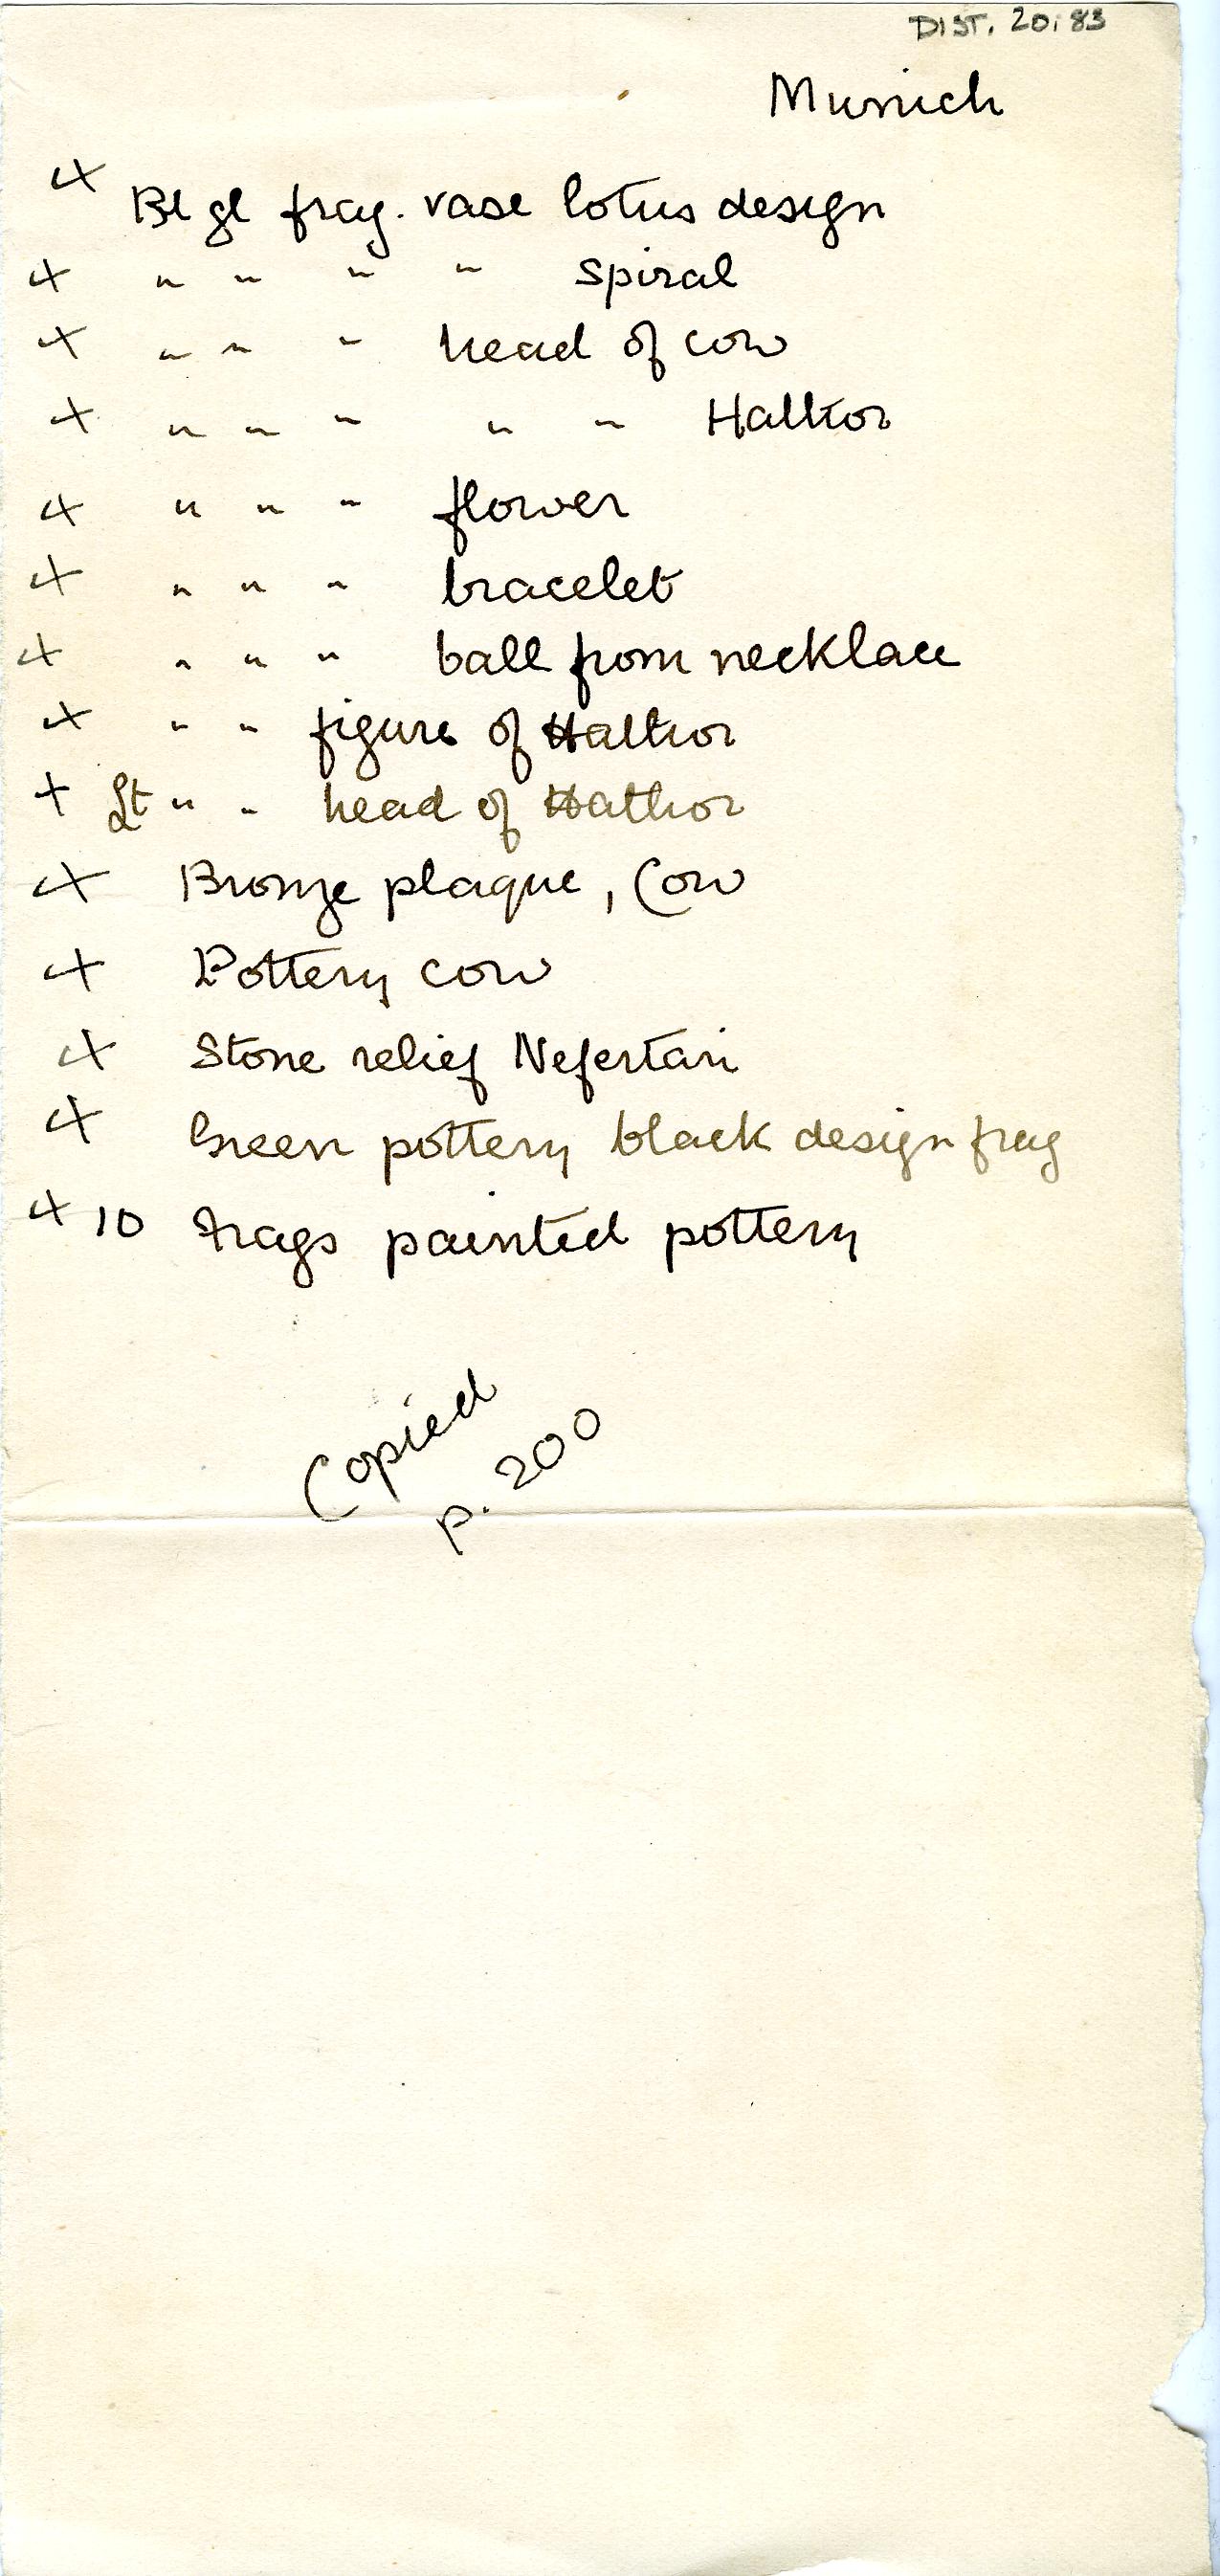 DIST. 20:83
Munich
x Bl gl frag. vase lotus design
x " " " " spiral
x " " " head of cow
x " " " " " Hathor
x " " " flower
x " " " bracelet
x " " " ball from necklace
x " " figure of Hathor
x Lt " " head of Hathor
x Bronze plaque, Cow
x Pottery cow
x Stone relief Nefertari
x Green pottery black design frag
x 10 Frags painted pottery
Copied
p. 200